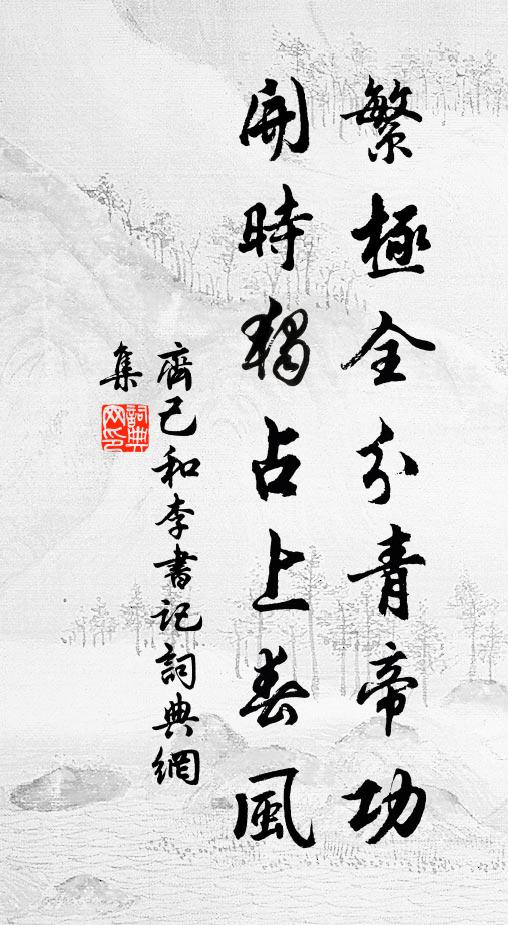 繁極全分青帝功
開時獨占上春風
齊己和李書記詞典網
集
詞典网印